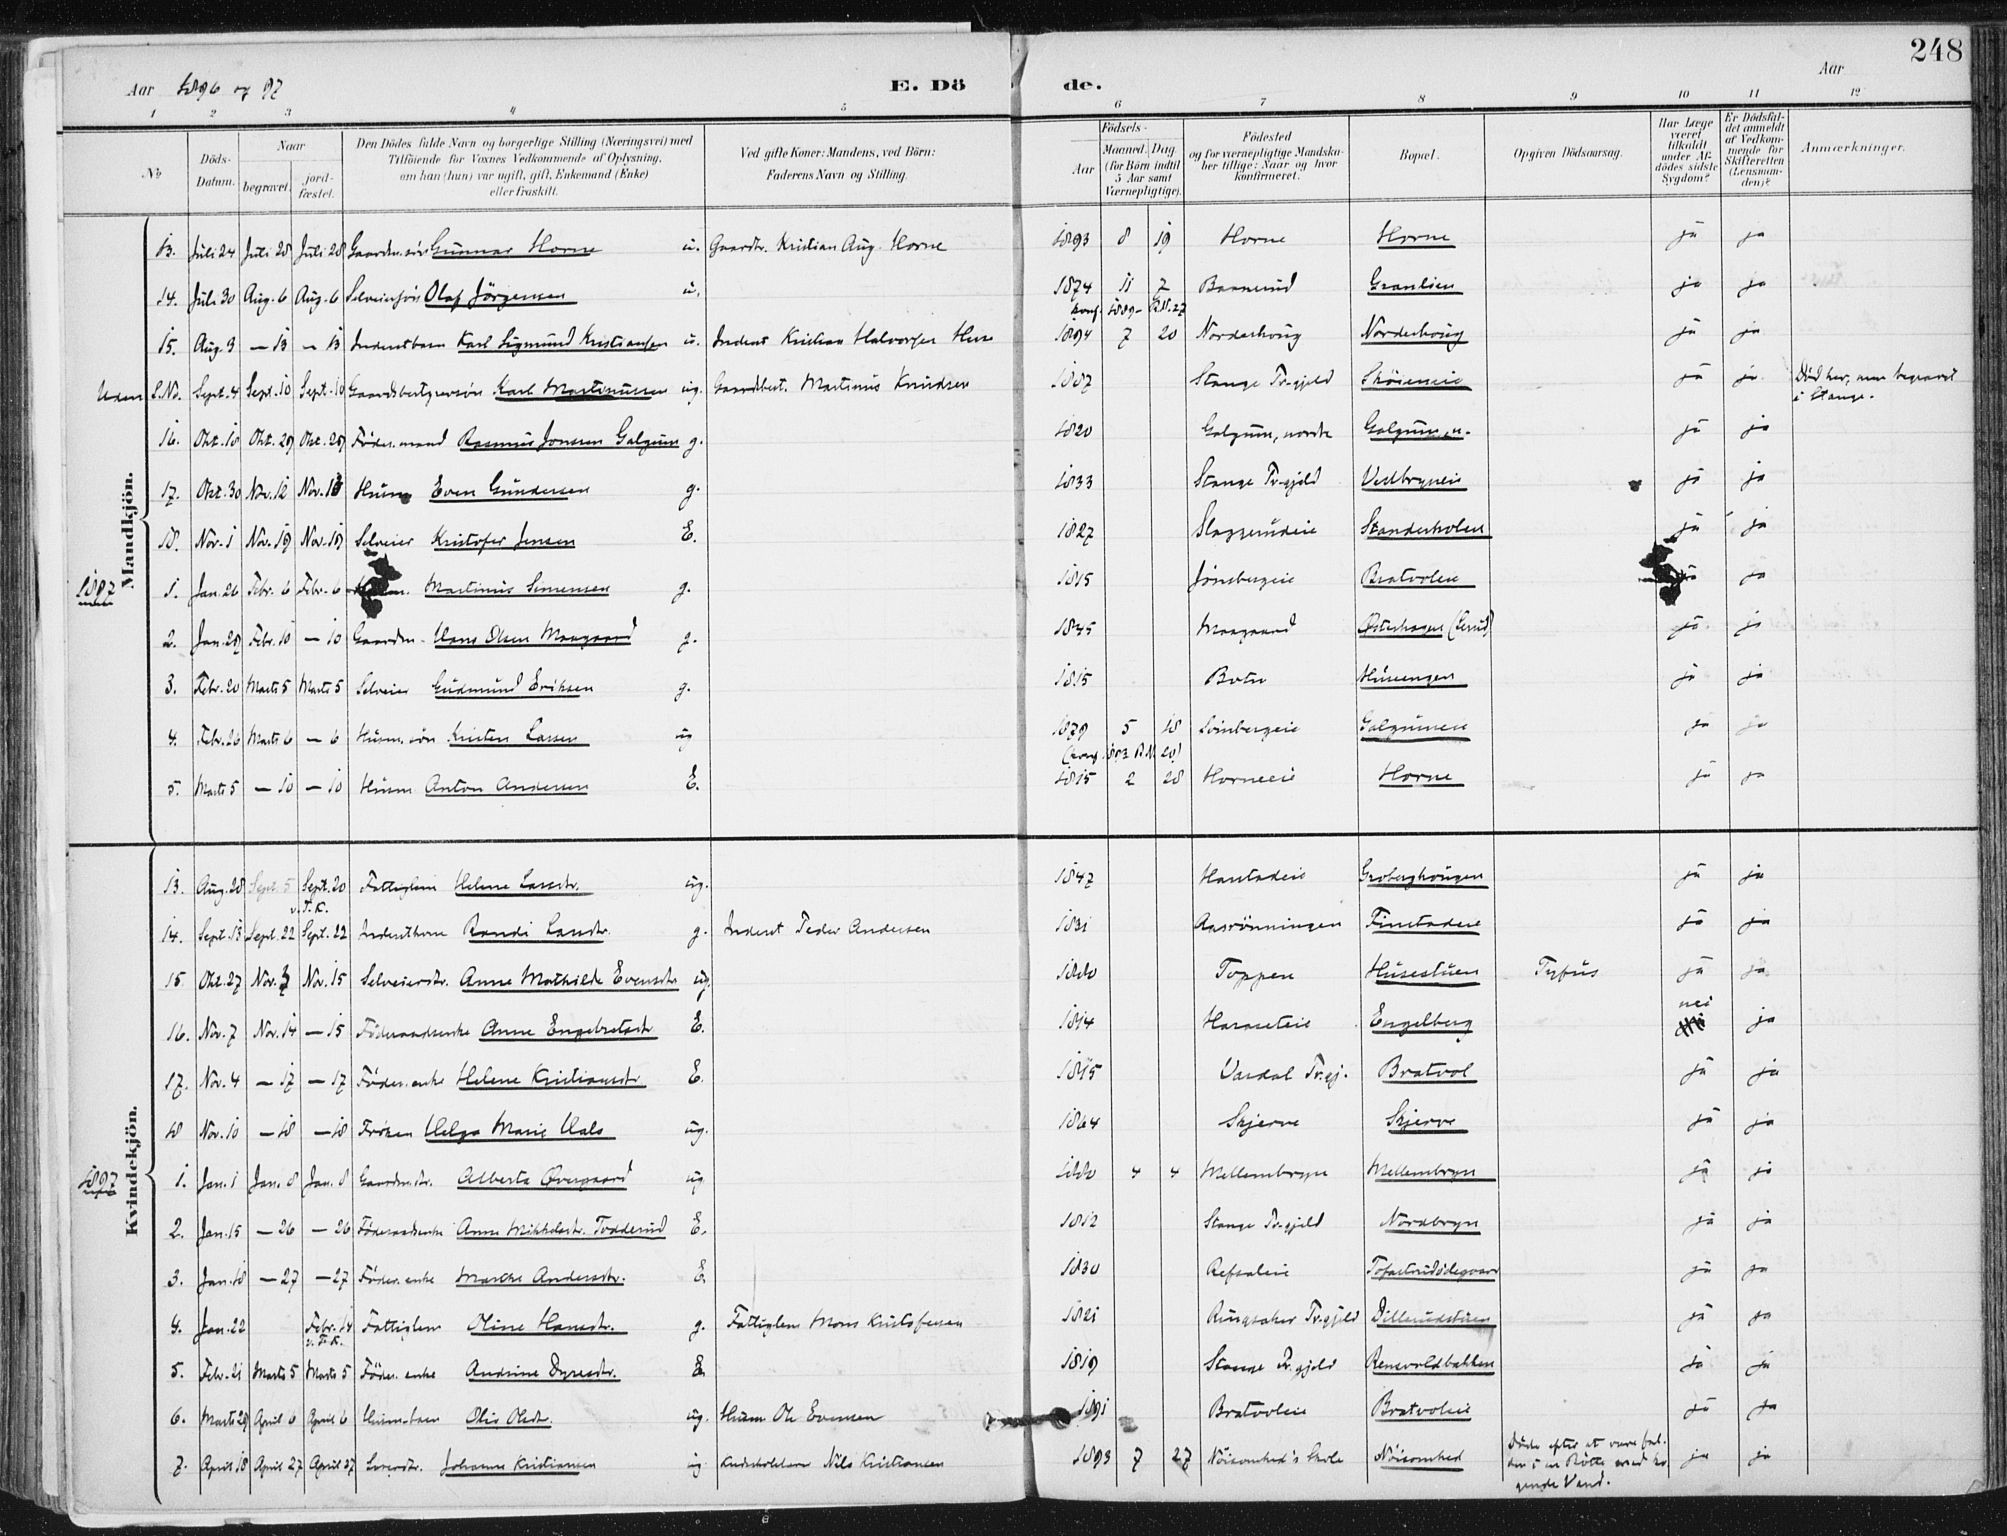 248
Aar 1896 og 97 E. Dö de. Aar
1 2 3 4 5 6 7 8 9 10 11 12
No
Döds-Datum.
Naar
begravet.
jord-fæstet.
Den Dödes fulde Navn og borgerlige Stilling (Næringsvei) med
Tilföiende for Voxnes Vedkommende af Oplysning,
om han (hun) var ugift, gift, Enkemand (Enke)
eller fraskilt.
Ved gifte Koner: Mandens, ved Börn:
Faderens Navn og Stilling.
Födsels-
Aar
Maaned. Dag
(for Börn indtil
5 Aar samt
Værnepligtige).
Födested
og for værnepligtige Mandska-
ber tillige: Naar og hvor
konfirmeret.
Bopæl.
Opgiven Dödsaarsag.
Har Læge
været
tilkaldt
under Af-
dödes sidste
Sygdom?
Er Dödsfal-
det anmeldt
af Vedkom-
mende for
Skifteretten
(Lensman-
den)?
Anmærkninger.
Mandkjön.
13. Juli 24 Juli 28 Juli 28 Gaardm. sön Gunnar Horne u. Gaardbr. Kristian Aug. Horne 1893 8 19 Horne Horne ja ja
14. Juli 30 Aug. 6 Aug. 6 Selveiersön Olaf Jörgensen u. 1874 11 7 Baanerud Granlien ja ja
konf. 1889
15. Aug. 9 — 13 — 13 Inderstbarn Karl Sigmund Kristiansen u. Inderst Kristian Halvorsen 1894 7 20 Norderhoug Norderhoug ja ja
Uden S.No. Sept. 4 Sept. 10 Sept. 10 Karl Martinussen ug. Gaardbest. Martinus Knudsen 1887 Stange Pr.gjeld ja ja. Död her, men begravet
i Stange.
16. Okt. 18 Okt. 29 Okt. 29 Föder. mand Rasmus Jonsen Galgum g. 1820 Galgum, nordre ja ja
17. Okt. 30 Nov. 12 Nov. Husm. Even Gundersen g. 1833 Stange Pr.gjeld Vestbryneie ja ja
18. Nov. 1 Nov. 19 Nov. 19 Selveier Kristofer Jensen E. 1827 Slaggerudeie ja ja
1897
1. Jan. 26 Febr. 6 Febr. 6 Martinus Simensen g. 1815 Jönsbergeie Bratvoleie ja
2. Jan. 29 Febr. 10 — 10 Gaardm. Hans Olsen Maagaard g. 1845 Maagaard ja ja
3. Febr. 20 Marts 5 Marts 5 Selveier Gudmund Eriksen g. 1815 ja ja
4. Febr. 26 Marts 6 — 6 Husm. sön Kristen Larsen ug 1879 5 18 ja ja
5. Marts 5 — 10 — 10 Husm Anton Andersen E. 1815 2 28 Horneeie Horne ja ja
Kvindekjön.
13. Aug. 28 Sept. 5 Sept. 20 Fattiglem Helene Larsdtr. ug. 1847 ja ja
14. Sept. 13 Sept. 22 Sept. 22 Inderstkone Randi Larsdtr. g. Inderst Peder Andersen 1831 Aasrönningen Finstadeie ja ja
15. Okt. 27 Nov. Nov. 15 Selveierdtr. Anne Mathilde Evensdtr ug. 1880 Toppen Husestuen Tyfus ja ja
16. Nov. 7 Nov. 14 — 15 Föderaadsenke Anne Engebretsdtr E. 1814 Engelberg nei ja
17. Nov. 4 — 17 — 17 Föder. enke Helene Kristiansdtr E. 1815 Vardal Pr.gj. Bratvol ja ja
18 Nov. 10 — 18 — 18 Fröken Helga Marie Hals ug. 1864 Skjerve Skjerve ja ja
1897
1. Jan. 1 Jan. 8 Jan. 8 Gaardm. dtr. Alberta Övergaard ug 1880 4 4 Mellembryn Mellembryn ja ja
2. Jan. 15 — 26 — 26 Föderaadsenke Anne Mikkelsdtr. Todderud E. 1812 Stange Pr.gjeld Nordbryn ja ja
3. Jan. 18 — 27 — 27 Föder. enke Marthe Andersdtr. E. 1830 Refsaleie ja ja
4. Jan. 22 Febr. 14 Fattiglem Oline Hansdtr. g. Fattiglem Mons Kristofersen 1821 Ringsaker Pr.gjeld Dillerudstuen ja ja
5. Febr. 21 Marts 5 Marts 5 Föder. enke Andrine Dyresdtr. E. 1819 Stange Pr.gjeld Rensvoldbakken ja ja
6. Marts 29 April 6 April 6 Husm. barn Olis Olsdtr. ug. Husm Ole Evensen 1891 Bratvoleie Bratvoleie ja ja
7. April 18 April 27 April 27 Johanne Kristiansen ug Nils Kristiansen 1893 7 27 Nöisomhed's Skole Nöisomhed Döde efter at være fal-
den i en Bötte med ko-
gende Vand. ja ja